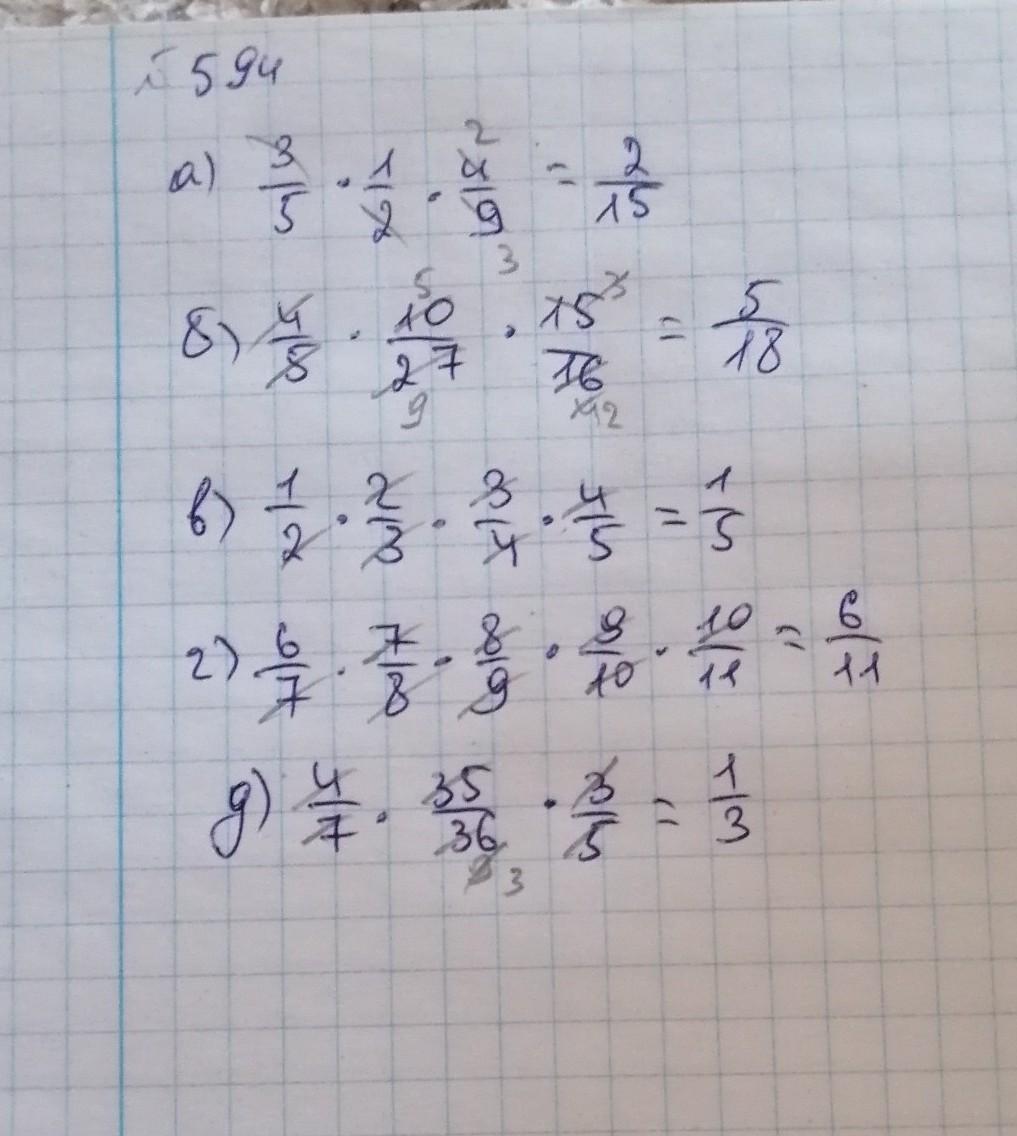 № 594
а) 3/5 · 1/2 · 4/9 = 2/15
2
3
б) 4/5 · 10/27 · 15/16 = 5/18
5 3
9 4 2
в) 1/2 · 2/3 · 3/4 · 4/5 = 1/5
г) 6/7 · 7/8 · 8/9 · 9/10 · 10/11 = 6/11
д) 4/7 · 35/36 · 3/5 = 1/3
9 3